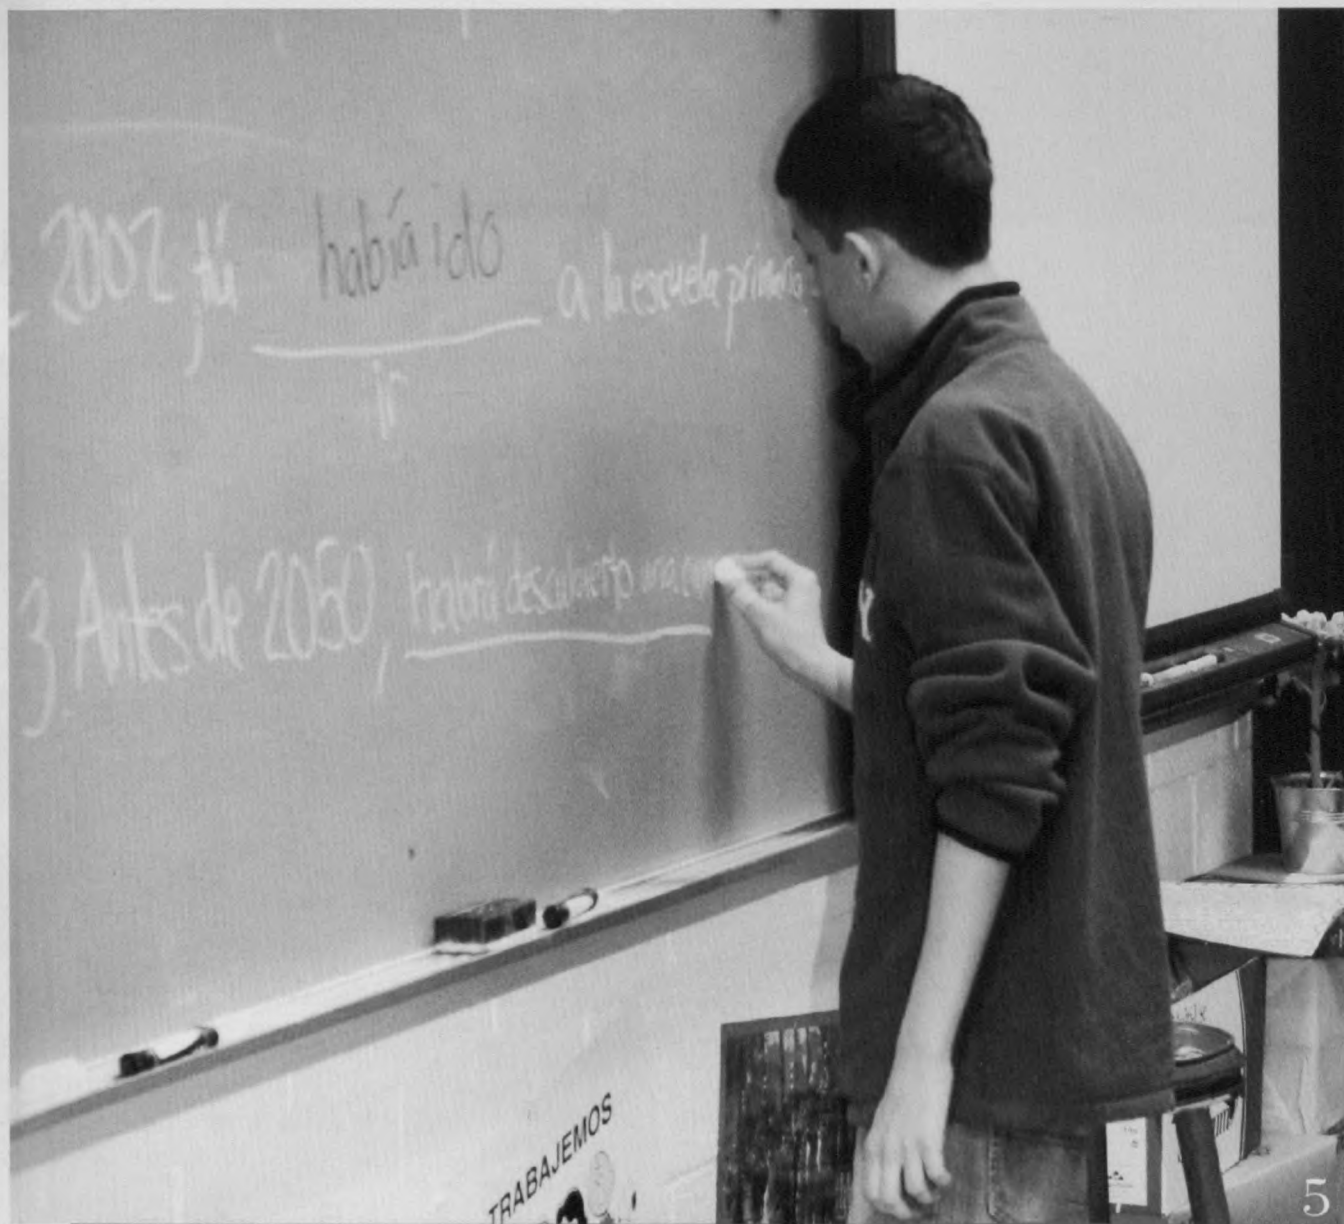 2002, tú había ido a la escuela primaria
ir
3. Antes de 2050, habrá descubierto una
TRABAJEMOS
5